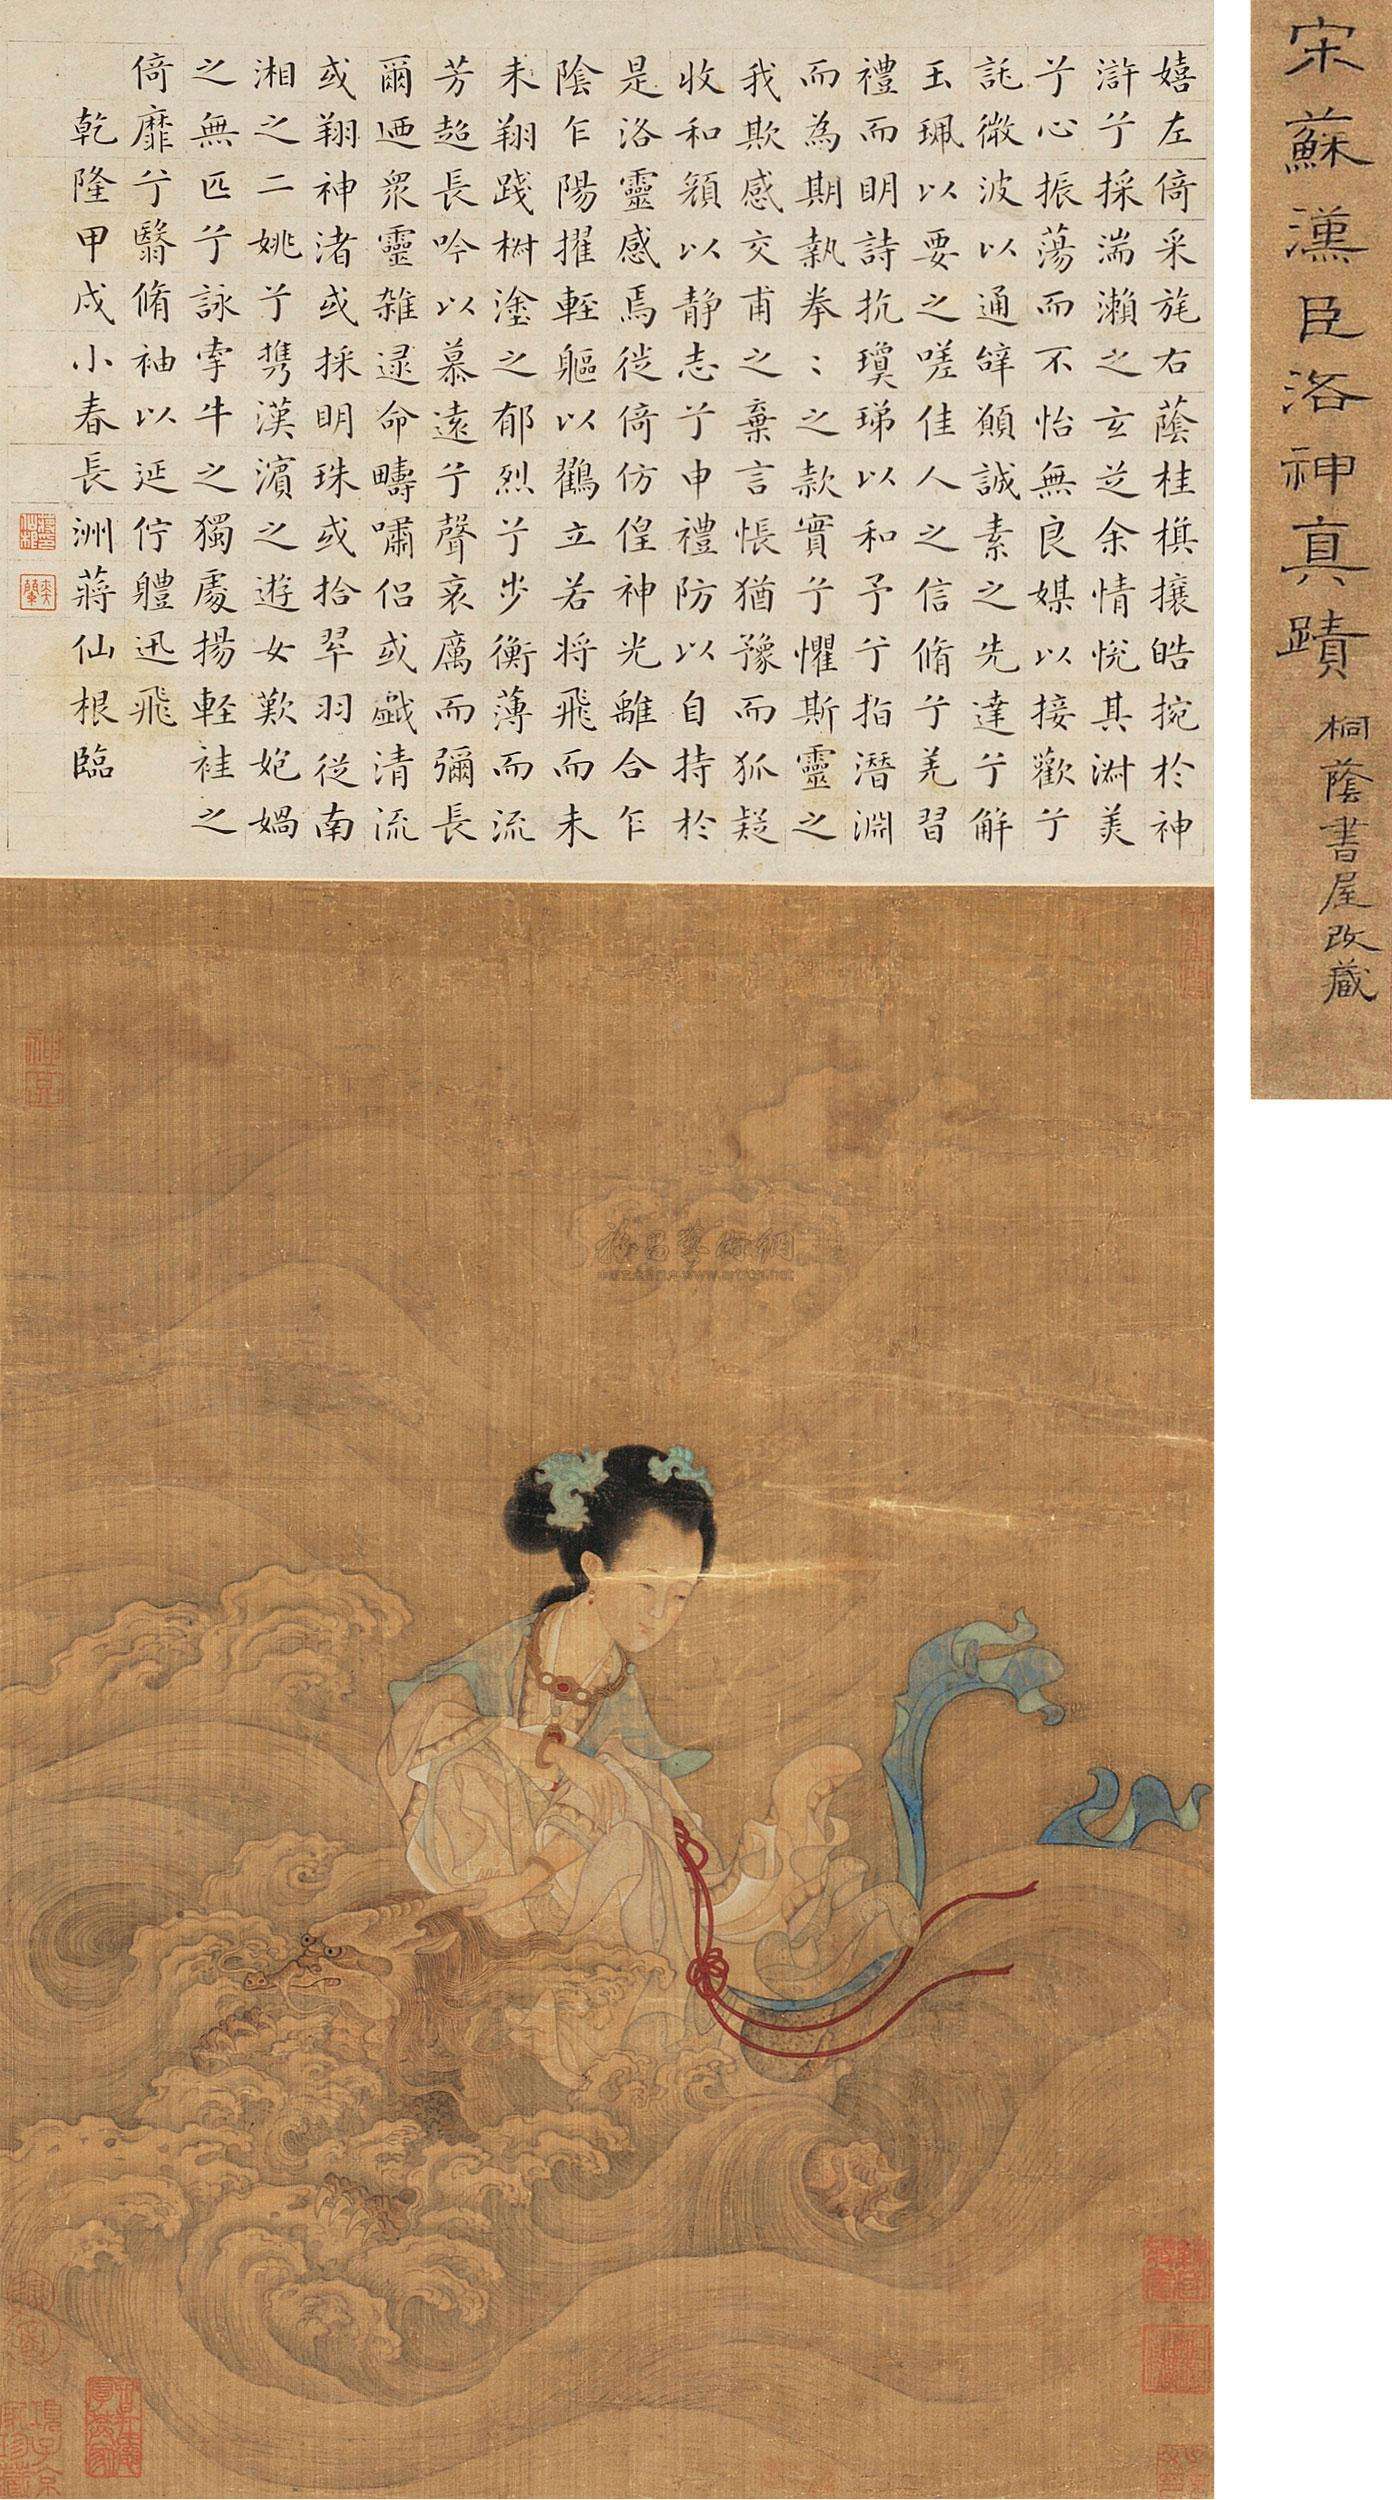 宋蘇漢臣洛神真蹟
桐蔭書屋改藏
嬉左倚采旄右蔭桂旗攘皓捥於神
滸兮採湍瀨之玄芝余情悅其淑美
兮心振蕩而不怡無良媒以接歡兮
託微波以通辭願誠素之先達兮解
玉珮以要之嗟佳人之信脩兮羌習
禮而明詩抗瓊珶以和予兮指潛淵
而為期執拳〻之款實兮懼斯靈之
我欺感交甫之棄言悵猶豫而狐疑
收和顏以静志兮申禮防以自持於
是洛靈感焉徙倚仿偟神光離合乍
陰乍陽擢輕軀以鶴立若將飛而未
未翔踐椒塗之郁烈兮步衡薄而流
芳超長吟以慕遠兮聲哀厲而彌長
爾迺衆靈雜遝命疇嘯侶或戲清流
或翔神渚或採明珠或拾翠羽從南
湘之二姚兮攜漢濱之遊女歎匏媧
之無匹兮詠牽牛之獨處揚輕袿之
倚靡兮翳脩袖以延佇體迅飛
乾隆甲戌小春長洲蔣仙根臨
雅昌藝術網